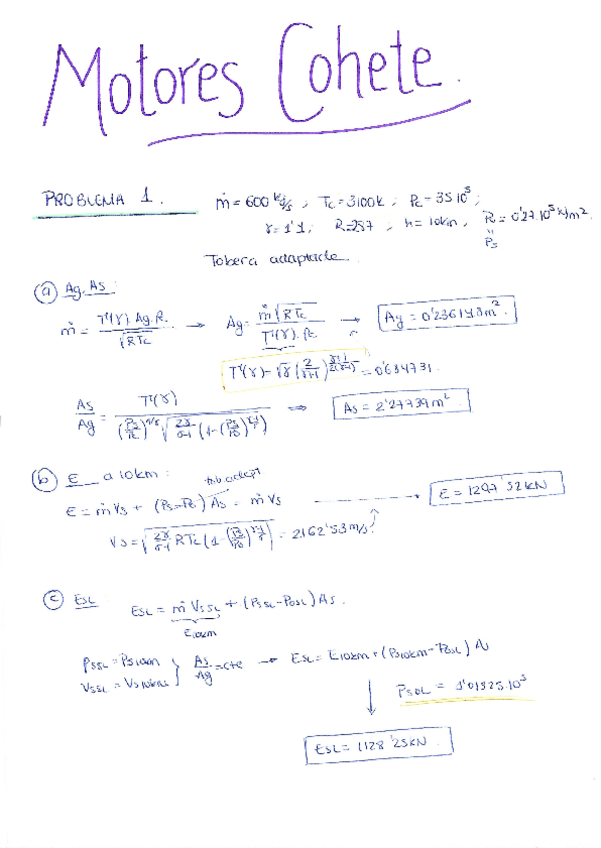 Motores Cohete.
PROBLEMA 1. ṁ = 600 kg/s ; Tc = 3100K ; Pc = 35·10⁵ ;
γ = 1'1 ; R = 287 ; h = 10km , = 0'27·10⁵ N/m².
Ps
Tobera adaptada.
(a) Ag, As :
ṁ = Γ(γ) Ag·Pc / √(RTc) → Ag = ṁ√(RTc) / (Γ(γ)·Pc) → Ag = m².
Γ(γ) = √γ (2/(γ+1))^((γ+1)/(2(γ-1))) =
As/Ag = Γ(γ) / ((Ps/Pc)^(1/γ) √(2γ/(γ-1) (1-(Ps/Pc)^((γ-1)/γ)))) ⇒ As = 2'27739 m²
(b) E a 10km : tob adapt
E = ṁVs + (Ps-Po) As = ṁVs → E = 1297'52kN
Vs = √(2γ/(γ-1) RTc (1-(Ps/Pc)^((γ-1)/γ))) = 2162'53 m/s
(c) ESL ESL = ṁ VsSL + (PsSL-PoSL) As.
E10km
PsSL = Ps10km } As/Ag = cte → ESL = E10km + (Ps10km-PoSL) As
VsSL = Vs10km
PoSL = 1'01325·10⁵
ESL = 1128'25kN.